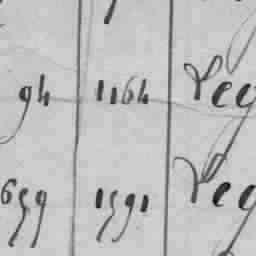 94 1164 Veg
659 1591 Veg